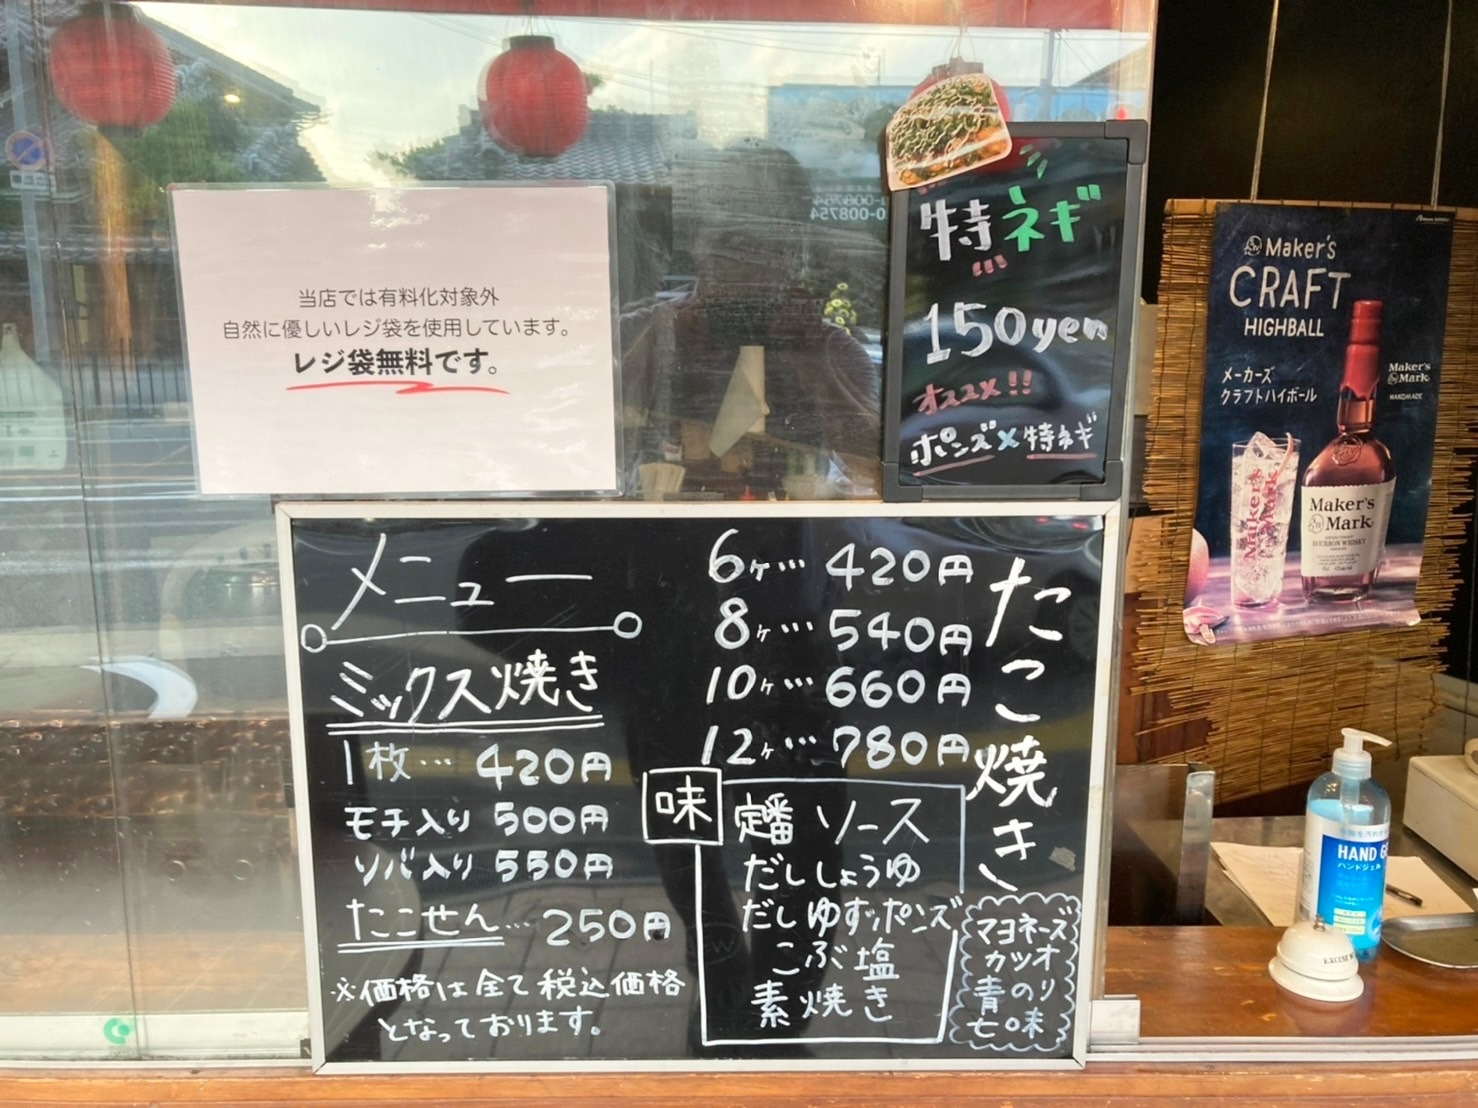 当店では有料化対象外
自然に優しいレジ袋を使用しています。
レジ袋無料です。
特ネギ
150yen
オススメ!!
ポンズ×特ネギ
Maker's
CRAFT
HIGHBALL
メーカーズ
クラフトハイボール
Maker's
Mark
HANDMADE
Maker's
Mark
Maker's
Mark
BOURBON WHISKY
メニュー
ミックス焼き
1枚… 420円
モチ入り 500円
ソバ入り 550円
たこせん… 250円
※価格は全て税込価格
となっております。
たこ焼き
6ヶ… 420円
8ヶ… 540円
10ヶ… 660円
12ヶ… 780円
味
定番 ソース
だししょうゆ
だしゆずポンズ
こぶ塩
素焼き
マヨネーズ
カツオ
青のり
七味
HAND G
ハンドジェル